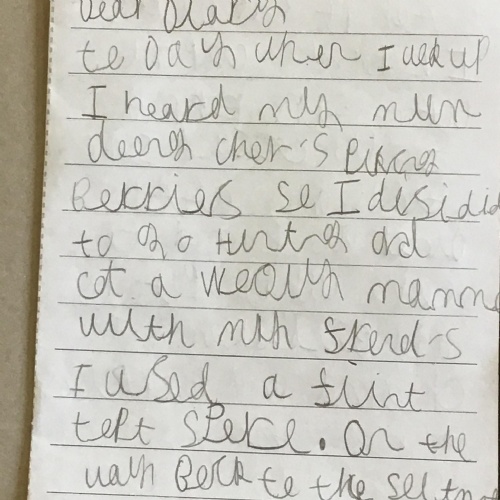 Dear Diary
te Day when I wek up
I heard my mum
deeng cher's Pikcng
Berries se I desidid
to go huntng and
cot a weolly mamm
with my frend's
I used a flint
tept spere. On the
way Beck te the setm